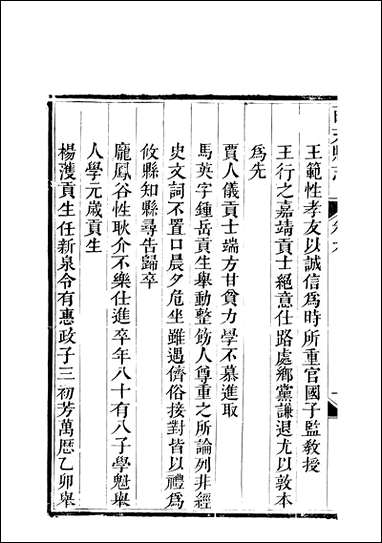 王範性孝友以誠信為時所重官國子監教授
王行之嘉靖貢士絕意仕路處鄉黨謙退尤以敦本
為先
賈人儀貢士端方甘貧力學不慕進取
馬英字鍾岳貢生舉動整飭人尊重之所論列非經
史文詞不置口晨夕危坐雖遇儕俗接對皆以禮為
攸縣知縣尋告歸卒
龐鳳谷性耿介不樂仕進卒年八十有八子學魁舉
人學元歲貢生
楊濩貢生任新泉令有惠政子三初芳萬厯乙卯舉